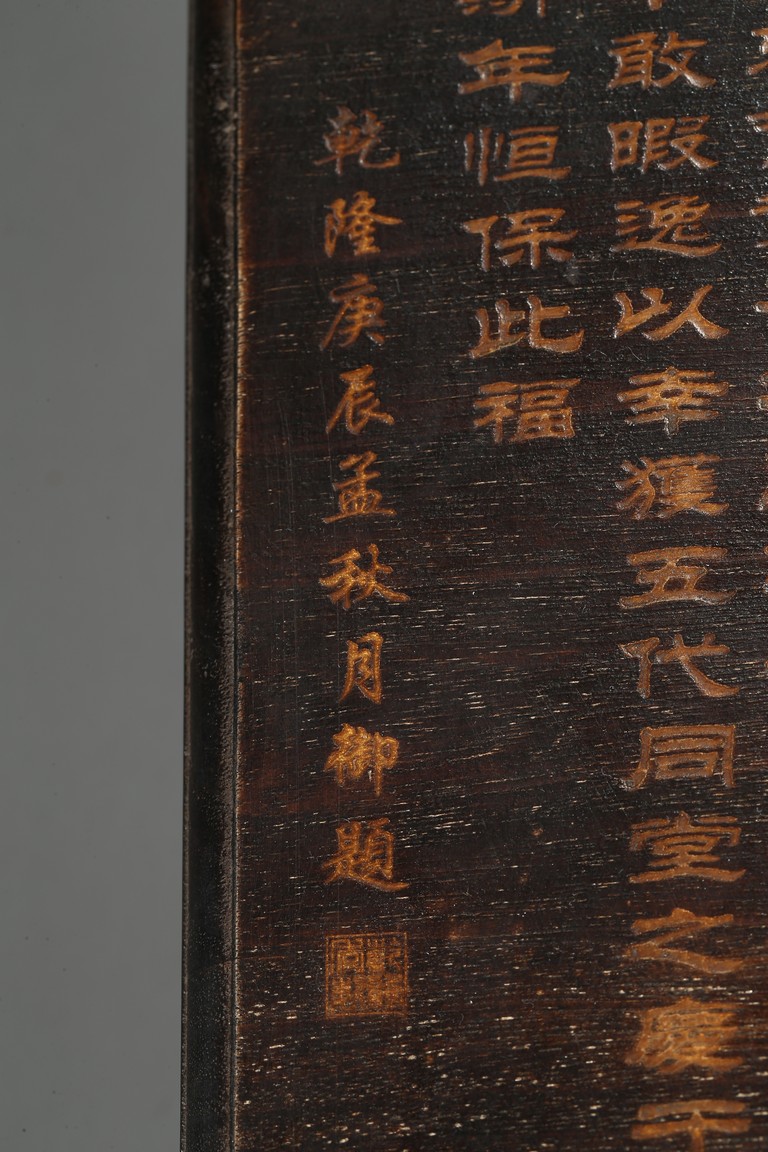 敢暇逸以幸獲五代同堂之慶于
年恒保此福
乾隆庚辰孟秋月御題